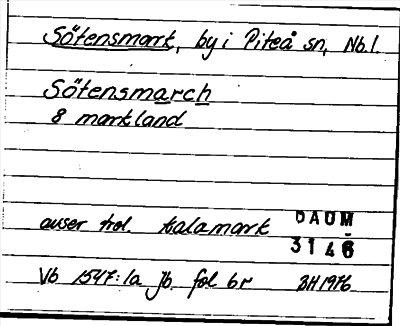 Sötensmark, by i Piteå sn, Nb.l.
Sötensmarch
8 markland
avser trol. Kalamark DAUM
3146
Vb 1547:1a jb. fol 6r BH 1976